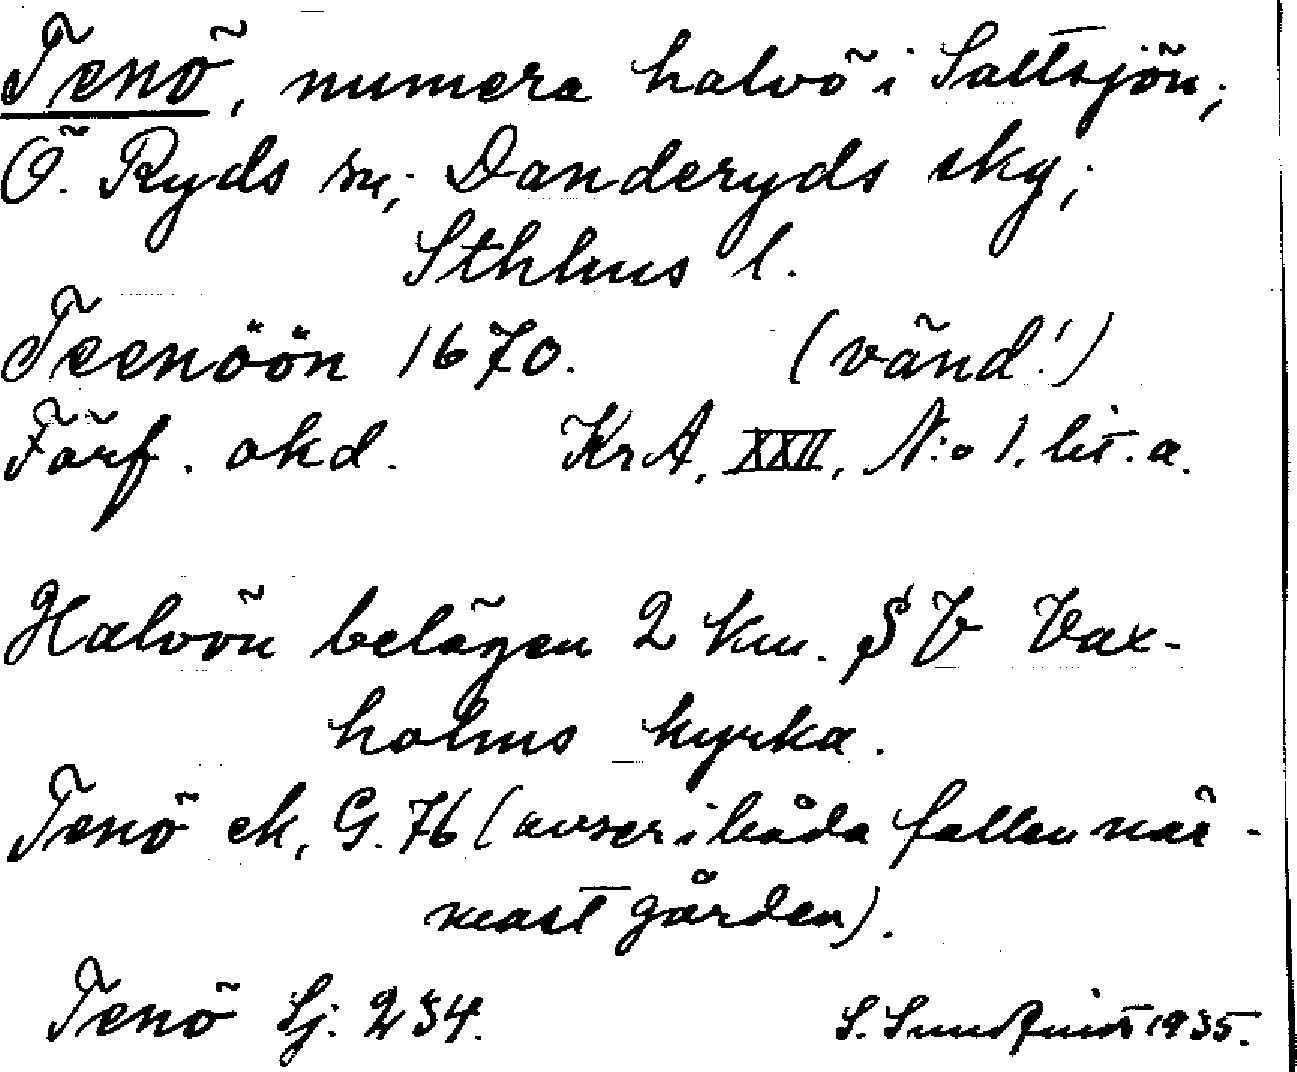 Tenö, numera halvö i Saltsjön;
Ö. Ryds sn; Danderyds skg;
Sthlms l.
Teenöön 1670. (vänd!)
Förf. okd. KrA, XXII, N:o 1. lit. a.
Halvön belägen 2 km. SV Vax-
holms kyrka.
Tenö ek, G. 76 (avser i båda fallen när-
mast gården).
Tenö Sj. 234. S. Sundquist 1935.